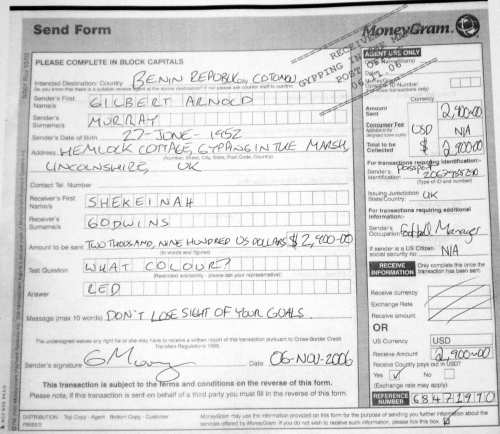 Send Form
MoneyGram.
RECEIVED
GYPPING IN THE MAR
POST OFF
PLEASE COMPLETE IN BLOCK CAPITALS
AGENT USE ONLY
Intended Destination: Country BENIN REPUBLIC, COTONOU
Sender's First Name/s GILBERT ARNOLD
Sender's Surname/s MURRAY
Sender's Date of Birth 27-JUNE-1952
Address HEMLOCK COTTAGE, GYPPING IN THE MARSH,
(Number, Street, City, State, Post Code, Country)
LINCOLNSHIRE, UK
Contact Tel. Number
Receiver's First Name/s SHEKEINAH
Receiver's Surname/s GODWINS
Amount to be sent TWO THOUSAND, NINE HUNDRED US DOLLARS $2,900-00
(In words and figures)
Test Question WHAT COLOUR?
Answer RED
Message (max 10 words) DON'T LOSE SIGHT OF YOUR GOALS.
Sender's signature GMurray Date 06-NOV-2006
This transaction is subject to the terms and conditions on the reverse of this form.
Please note, if this transaction is sent on behalf of a third party you must fill in the reverse of this form.
Currency
Amount Sent 2,900-00
Consumer Fee USD N/A
Total to be Collected $ 2,900-00
For transactions requiring Identification:-
Sender's Identification Passport
(Type of ID and number)
Issuing Jurisdiction State/Country: UK
For transactions requiring additional information:-
Sender's Occupation Football Manager
If sender is a US Citizen social security no. N/A
RECEIVE INFORMATION
Only complete this once the transaction has been sent
Receive currency
Exchange Rate
Receive amount
OR
US Currency USD
Receive Amount 2,900-00
Receive Country pays out in USD?
Yes ✓ No
(Exchange rate may apply)
REFERENCE NUMBER 68471910
DISTRIBUTION: Top Copy - Agent Bottom Copy - Customer
MoneyGram may use the information provided on this form for the purpose of sending you further information about the
services offered by MoneyGram. If you do not wish to receive such information, please tick this box